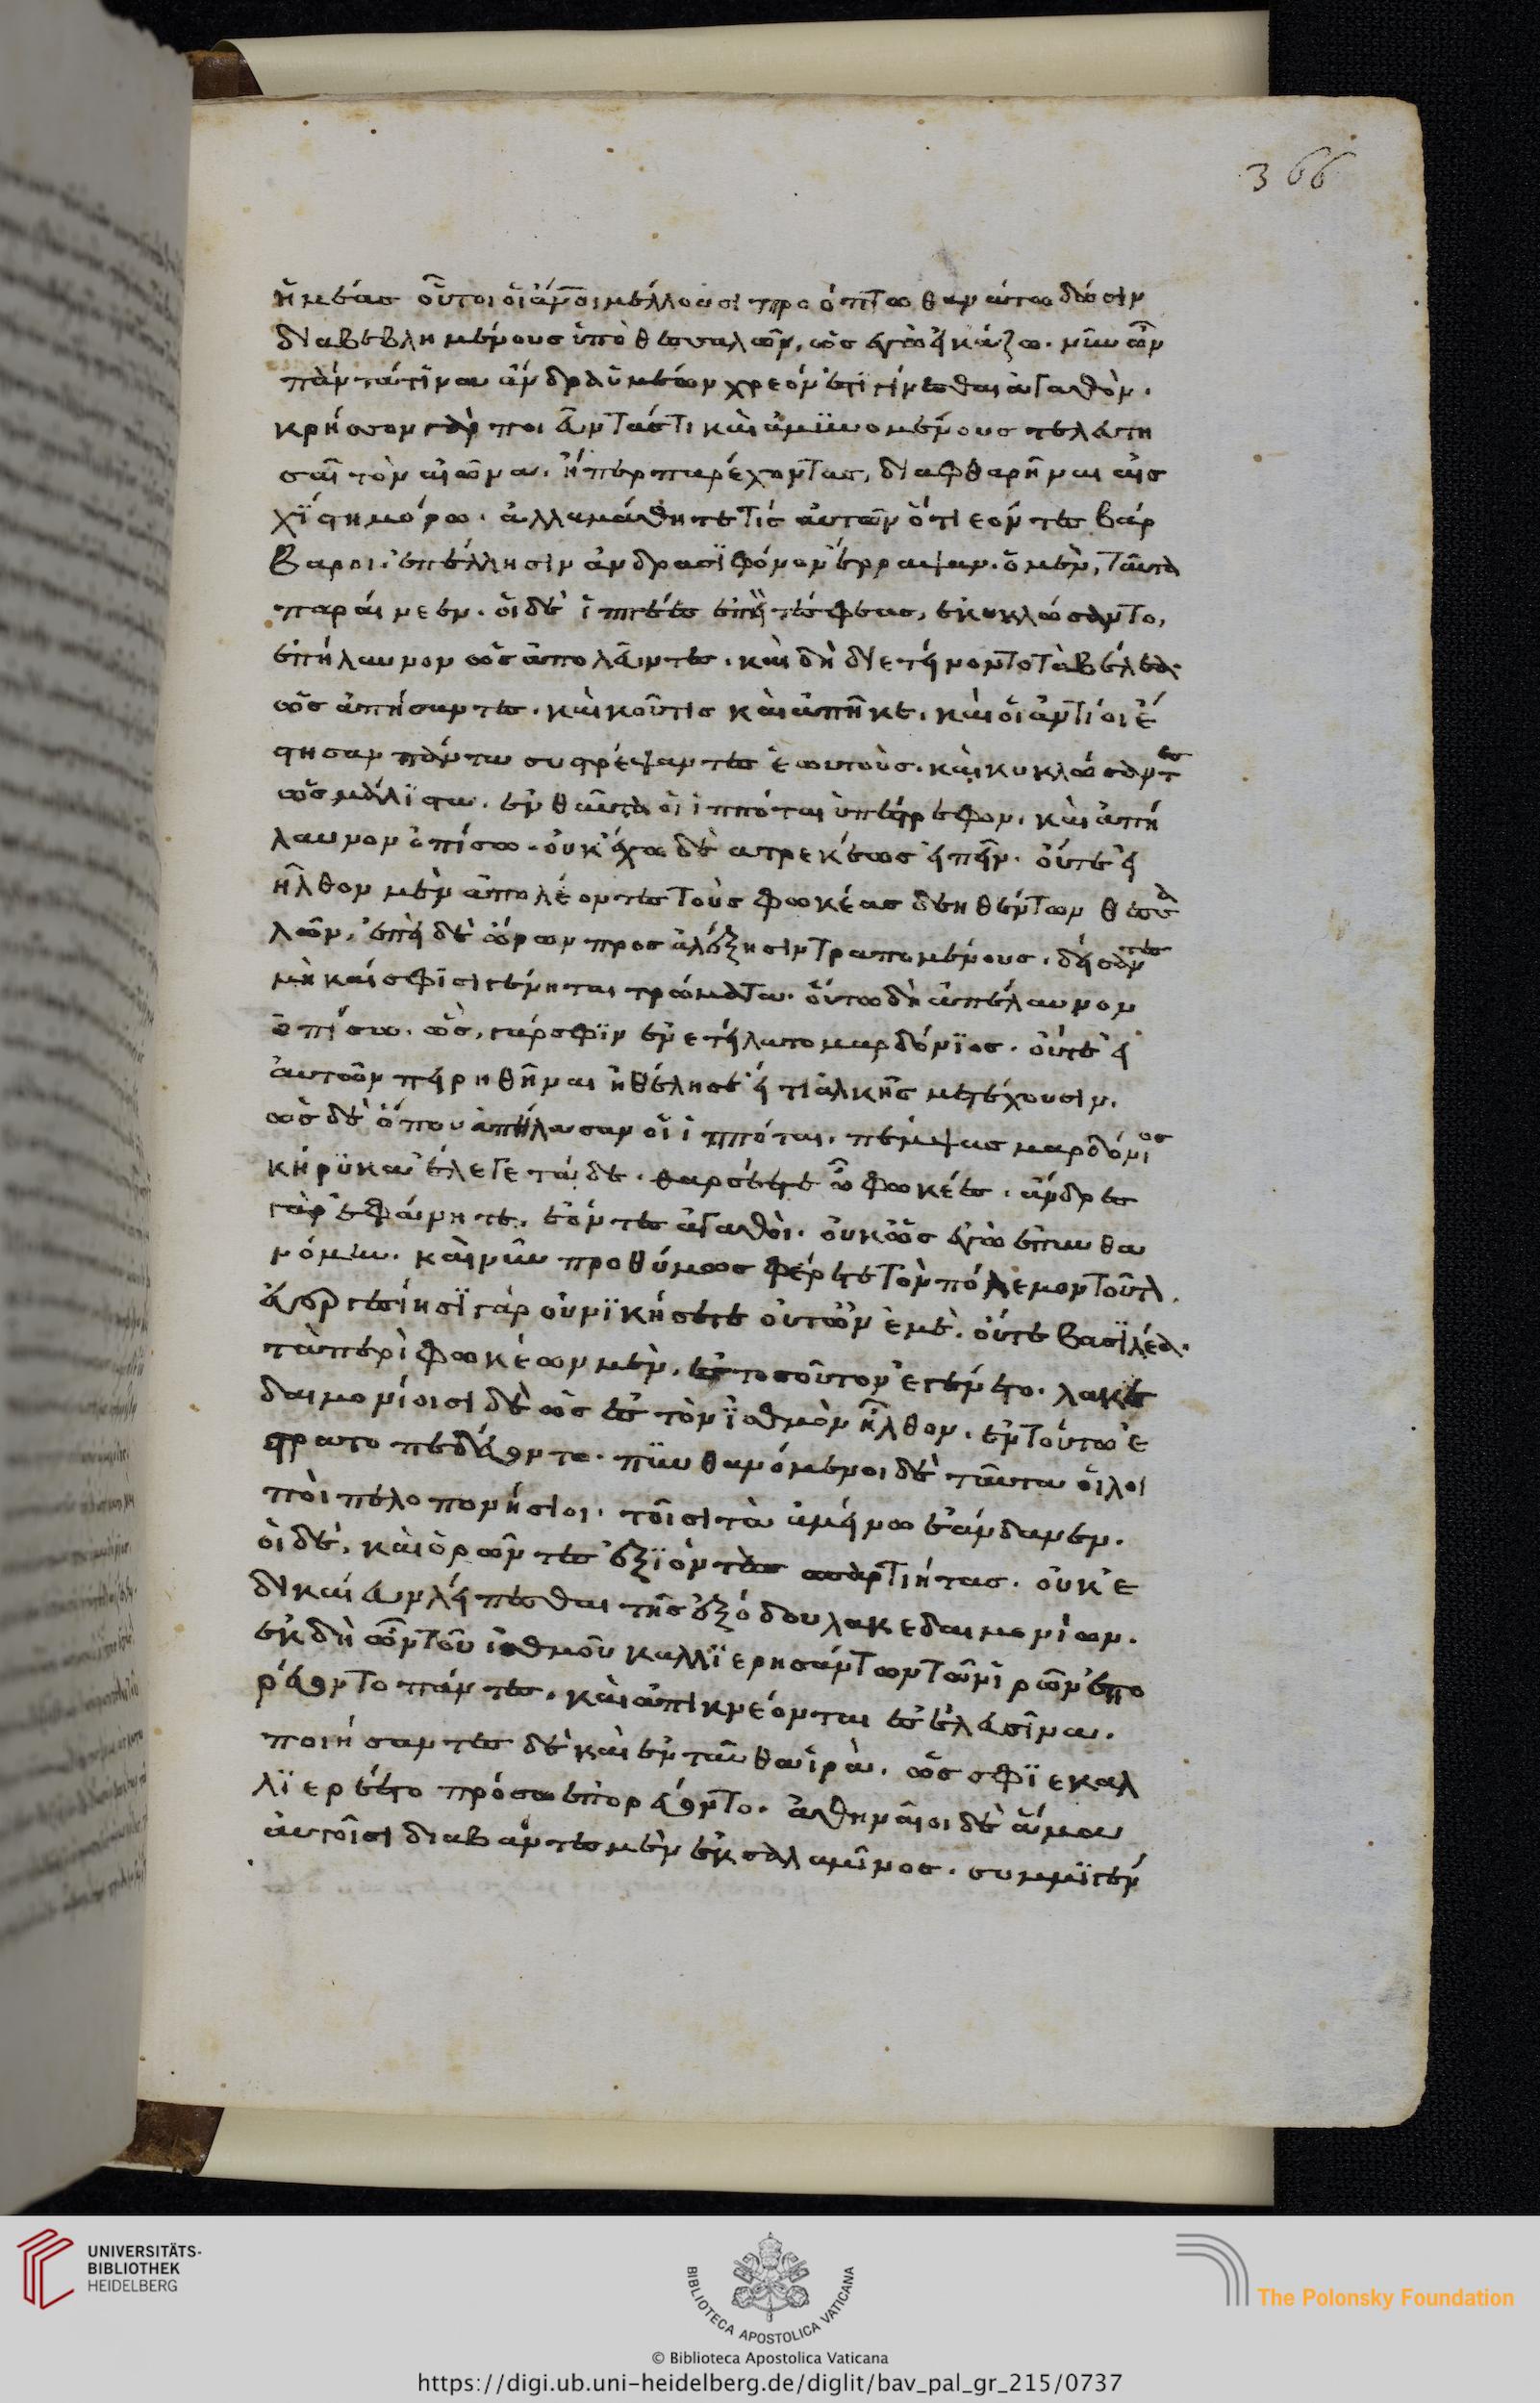 ἡμέας οὗτοι οἱ ἄνοι μέλλουσι προόπτω θανάτω δώσειν
διαβεβλημένους ὑπὸ θεσσαλῶν, ὡς ἐγὼ εἰκάζω. νῦν ὦν
πάντά τινα ἄνδρα ὑμέων χρεόν ἐστι γίνεσθαι ἀγαθόν.
κρῆσσον γὰρ ποιεῦντάς τι καὶ ἀμυνομένους τελευτῆ
σαι τὸν αἰῶνα. ἤπερ παρέχοντας, διαφθαρῆναι αἰσ
χίστη μόρω. ἀλλα μάθητέ τις αὐτῶν ὅτι εόντες βάρ
βαροι. ἐπέλλησιν ἀνδρασὶ φόνον ἔρραψαν. ὁ μὲν, ταῦτα
παραίνεεν. οἱ δὲ ἱππέες ἐπεί τέ σφεας, ἐκυκλώσαντο,
ἐπήλαυνον ὡς ἀπολεῦντες. καὶ δὴ διετείνοντο τὰ βέλεα
ὡς ἀπήσαντες. καὶ κοῦ τις καὶ ἀπῆκε. καὶ οἱ ἀντίοι ἔ
στησαν πάντα συστρέψαντες ἑωυτούς. καὶ κυκλώσαντες
ὡς μάλιστα. ἐνθαῦτα οἱ ἱππόται ὑπέστρεφον. καὶ ἀπή
λαυνον ὀπίσω. οὐκ ἔχω δὲ ατρεκέως εἰπεῖν. οὔτε εἰ
ἦλθον μὲν ἀπολέοντες τοὺς φωκέας δεηθέντων θεσσα
λῶν, ἐπεὶ δὲ ὥρων προς ἀλέξησιν τραπομένους. δείσαντες
μὴ καί σφισι γένηται τρώματα. οὕτω δὴ ἀπέλαυνον
ὀπίσω. ὣς, γάρ σφιν ἐνετείλατο μαρδόνιος. οὔτε εἰ
ἀυτῶν πειρηθῆναι ἠθέλησε εἴ τι ἀλκῆς μετέχουσιν.
ὡς δὲ ὀπου ἀπήλασαν οἱ ἱππόται. πέμψας μαρδόνιος
κήρυκα ἔλεγε τάδε. θαρσέετε ὦ φωκέες. ἄνδρες
γὰρ ἐφάνητε. ἐόντες ἀγαθοὶ. οὐκ ὡς ἐγὼ ἐπυνθα
νόμην. καὶ νῦν προθύμως φέρετε τὸν πόλεμον τοῦτον.
εὐεργεσίησι γὰρ οὐ νικήσετε οὐτῶν ἐμὲ. οὔτε βασιλέα.
τὰ περὶ φωκέων μὲν. ἐς τοσοῦτον ἐγένετο. λακε
δαιμονίοισι δὲ ὡς ἐς τὸν ἰσθμὸν ἦλθον. ἐν τούτω ἐ
στρατοπεδεύοντο. πυνθανόμενοι δὲ ταῦτα οἱ λοι
ποὶ πελοπονήσιοι. τοῖσι τὰ ἀμείνω ἑάνδανεν.
οἱ δὲ, καὶ ὁρῶντες ἐξιόντας σπαρτιήτας. οὐκ ἐ
δικαίευν λείπεσθαι τῆς ἐξόδου λακεδαιμονίων.
ἐκ δὴ ὦν τοῦ ἰσθμοῦ καλλιερησάντων τῶν ἱρῶν ἐπο
ρεύοντο πάντες. καὶ ἀπικνέονται ἐς ἐλευσῖνα.
ποιήσαντες δὲ καὶ ἐνταῦθα ἱρὰ. ὥς σφι εκαλ
λιερέετο πρόσω ἐπορεύοντο. ἀθηναῖοι δὲ ἅμα
ἀυτοῖσι διαβάντες μὲν ἐκ σαλαμῖνος. συμμιγέν
366
UNIVERSITÄTS-
BIBLIOTHEK
HEIDELBERG
BIBLIOTECA APOSTOLICA VATICANA
The Polonsky Foundation
© Biblioteca Apostolica Vaticana
https://digi.ub.uni-heidelberg.de/diglit/bav_pal_gr_215/0737